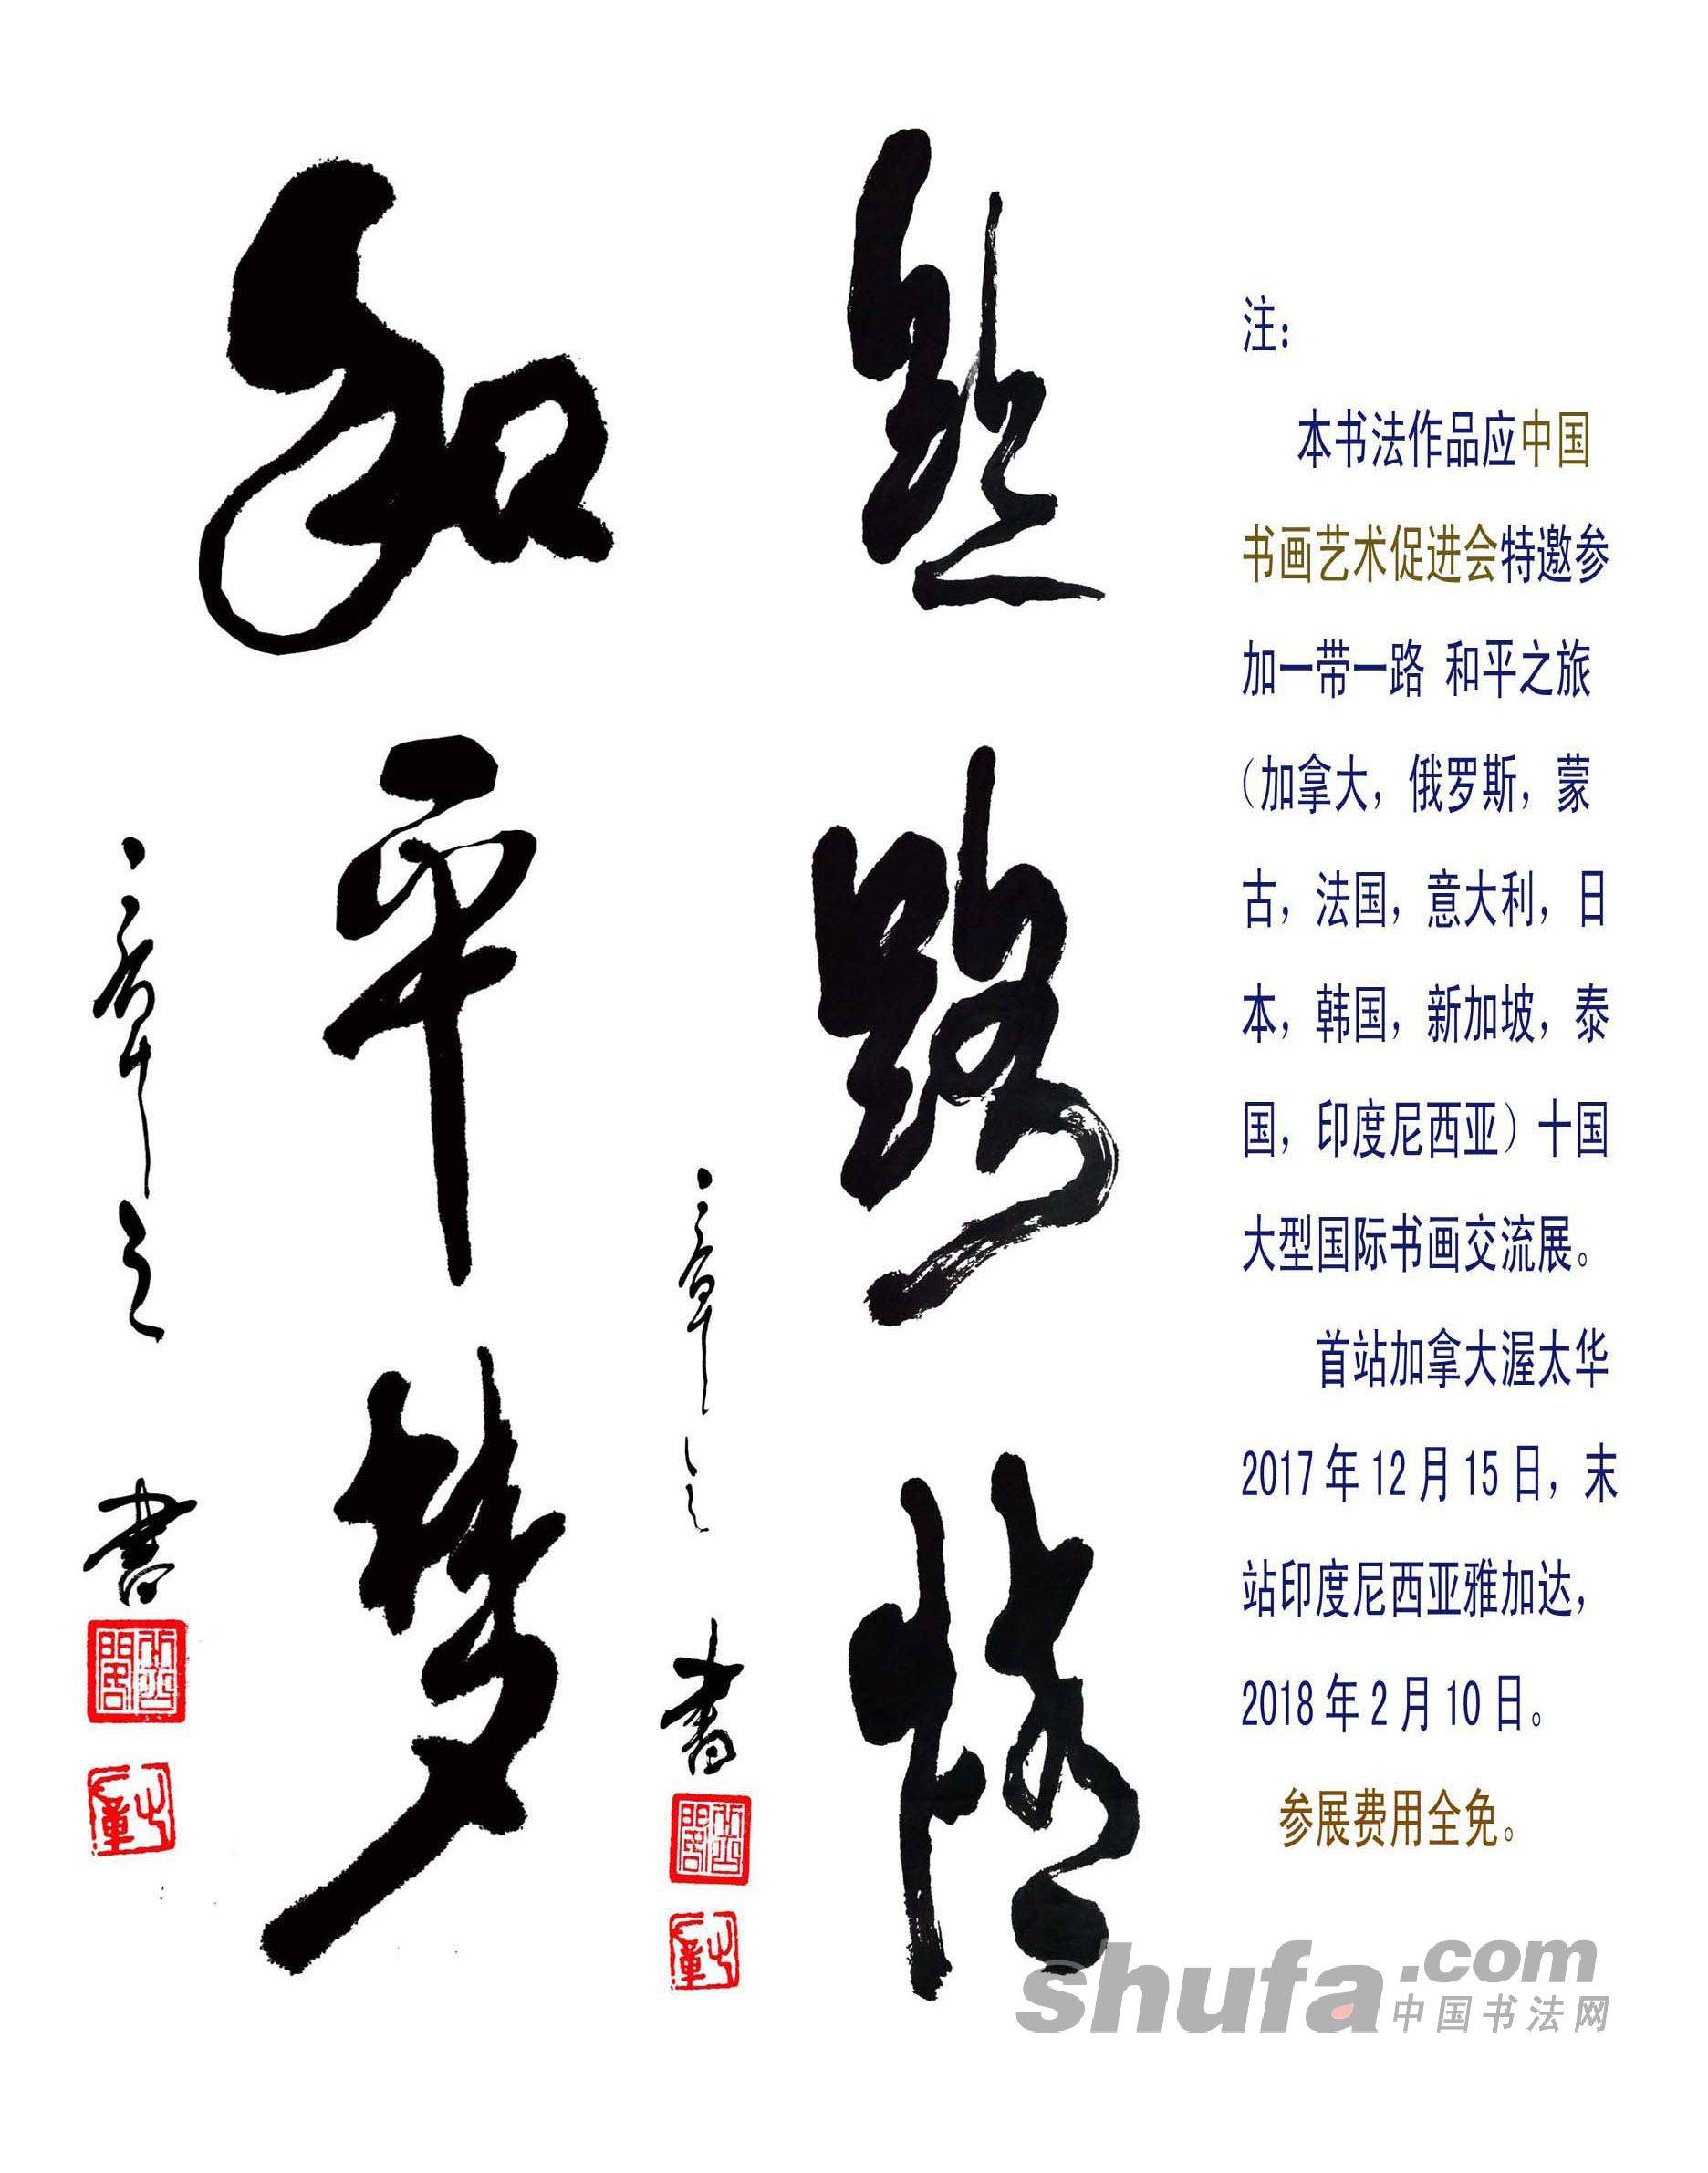 丝路情
章之
書
和平梦
章之
書
注：
本书法作品应中国
书画艺术促进会特邀参
加一带一路 和平之旅
（加拿大，俄罗斯，蒙
古，法国，意大利，日
本，韩国，新加坡，泰
国，印度尼西亚）十国
大型国际书画交流展。
首站加拿大渥太华
2017年12月15日，末
站印度尼西亚雅加达，
2018年2月10日。
参展费用全免。
shufa.com
中国书法网